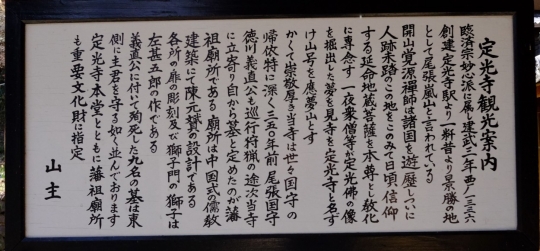 定光寺観光案内
臨済宗妙心派に属し建武三年西ノ一三三六
創建定光寺駅より一粁昔より景勝の地
として尾張嵐山と言われている
開山覚源禅師は諸国を遊歴しついに
人跡未踏のこの地をこのみて日頃信仰
する延命地蔵菩薩を本尊とし教化
に専念す 一夜衆僧等が定光佛の像
を掘出した夢を見寺を定光寺と名ず
け山号を應夢山とす
かくて崇敬厚き当寺は世々国守の
帰依特に深く三五〇年前 尾張国守
徳川義直公も巡行狩猟の途次当寺
に立寄り自から墓と定めたのが藩
祖廟所である 廟所は中国式の儒教
建築にて陳元贇の設計である
各所の扉の彫刻及び獅子門の獅子は
左甚五郎の作である
義直公に付いて殉死した九名の墓は東
側に主君を守る如く並んでおります
定光寺本堂とともに藩祖廟所
も重要文化財に指定
山主